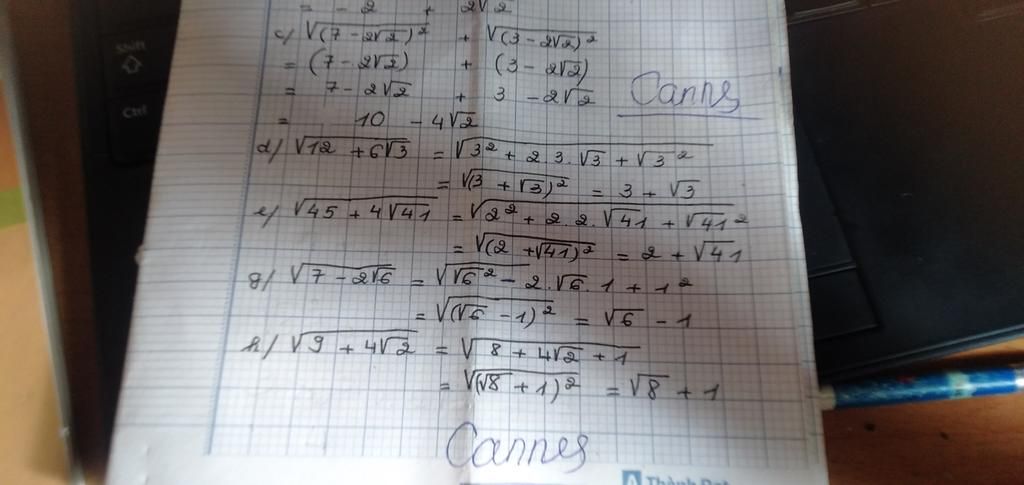 = - 2 + 2√2
c/ √(7 - 2√2)² + √(3 - 2√2)²
= (7 - 2√2) + (3 - 2√2)
= 7 - 2√2 + 3 - 2√2
Cannes
= 10 - 4√2
d/ √12 + 6√3 = √3² + 2.3.√3 + √3²
= √(3 + √3)² = 3 + √3
e/ √45 + 4√41 = √2² + 2.2.√41 + √41²
= √(2 + √41)² = 2 + √41
g/ √7 - 2√6 = √√6² - 2.√6.1 + 1²
= √(√6 - 1)² = √6 - 1
h/ √9 + 4√2 = √8 + 4√2 + 1
= √(√8 + 1)² = √8 + 1
Cannes
Shift
Ctrl